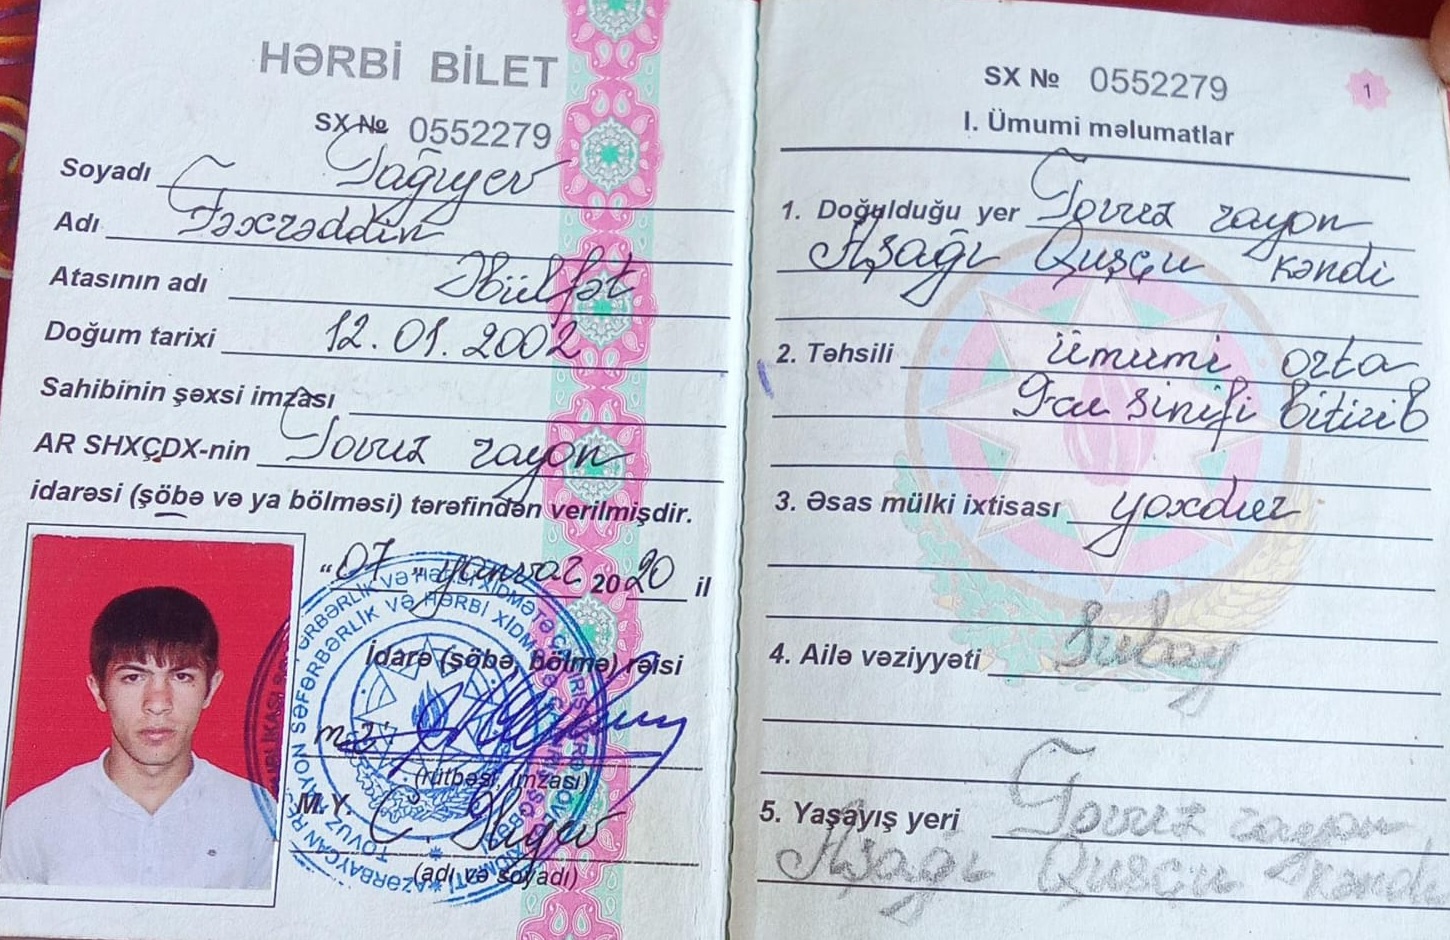 HƏRBİ BİLET
SX № 0552279
Soyadı Tağıyev
Adı Fəxrəddin
Atasının adı Əbülfət
Doğum tarixi 12.01.2002
Sahibinin şəxsi imzası
AR SHXÇDX-nin Tovuz rayon
idarəsi (şöbə və ya bölməsi) tərəfindən verilmişdir.
"07" yanvar 2020 il
İdarə (şöbə, bölmə) rəisi
(rütbəsi, imzası)
M.Y.
(adı və soyadı)
SX № 0552279
1
I. Ümumi məlumatlar
1. Doğulduğu yer Tovuz rayon
Aşağı Quşçu kəndi
2. Təhsili ümumi orta
9-cu sinifi bitirib
3. Əsas mülki ixtisası yoxdur
4. Ailə vəziyyəti Subay
5. Yaşayış yeri Tovuz rayon
Aşağı Quşçu kəndi